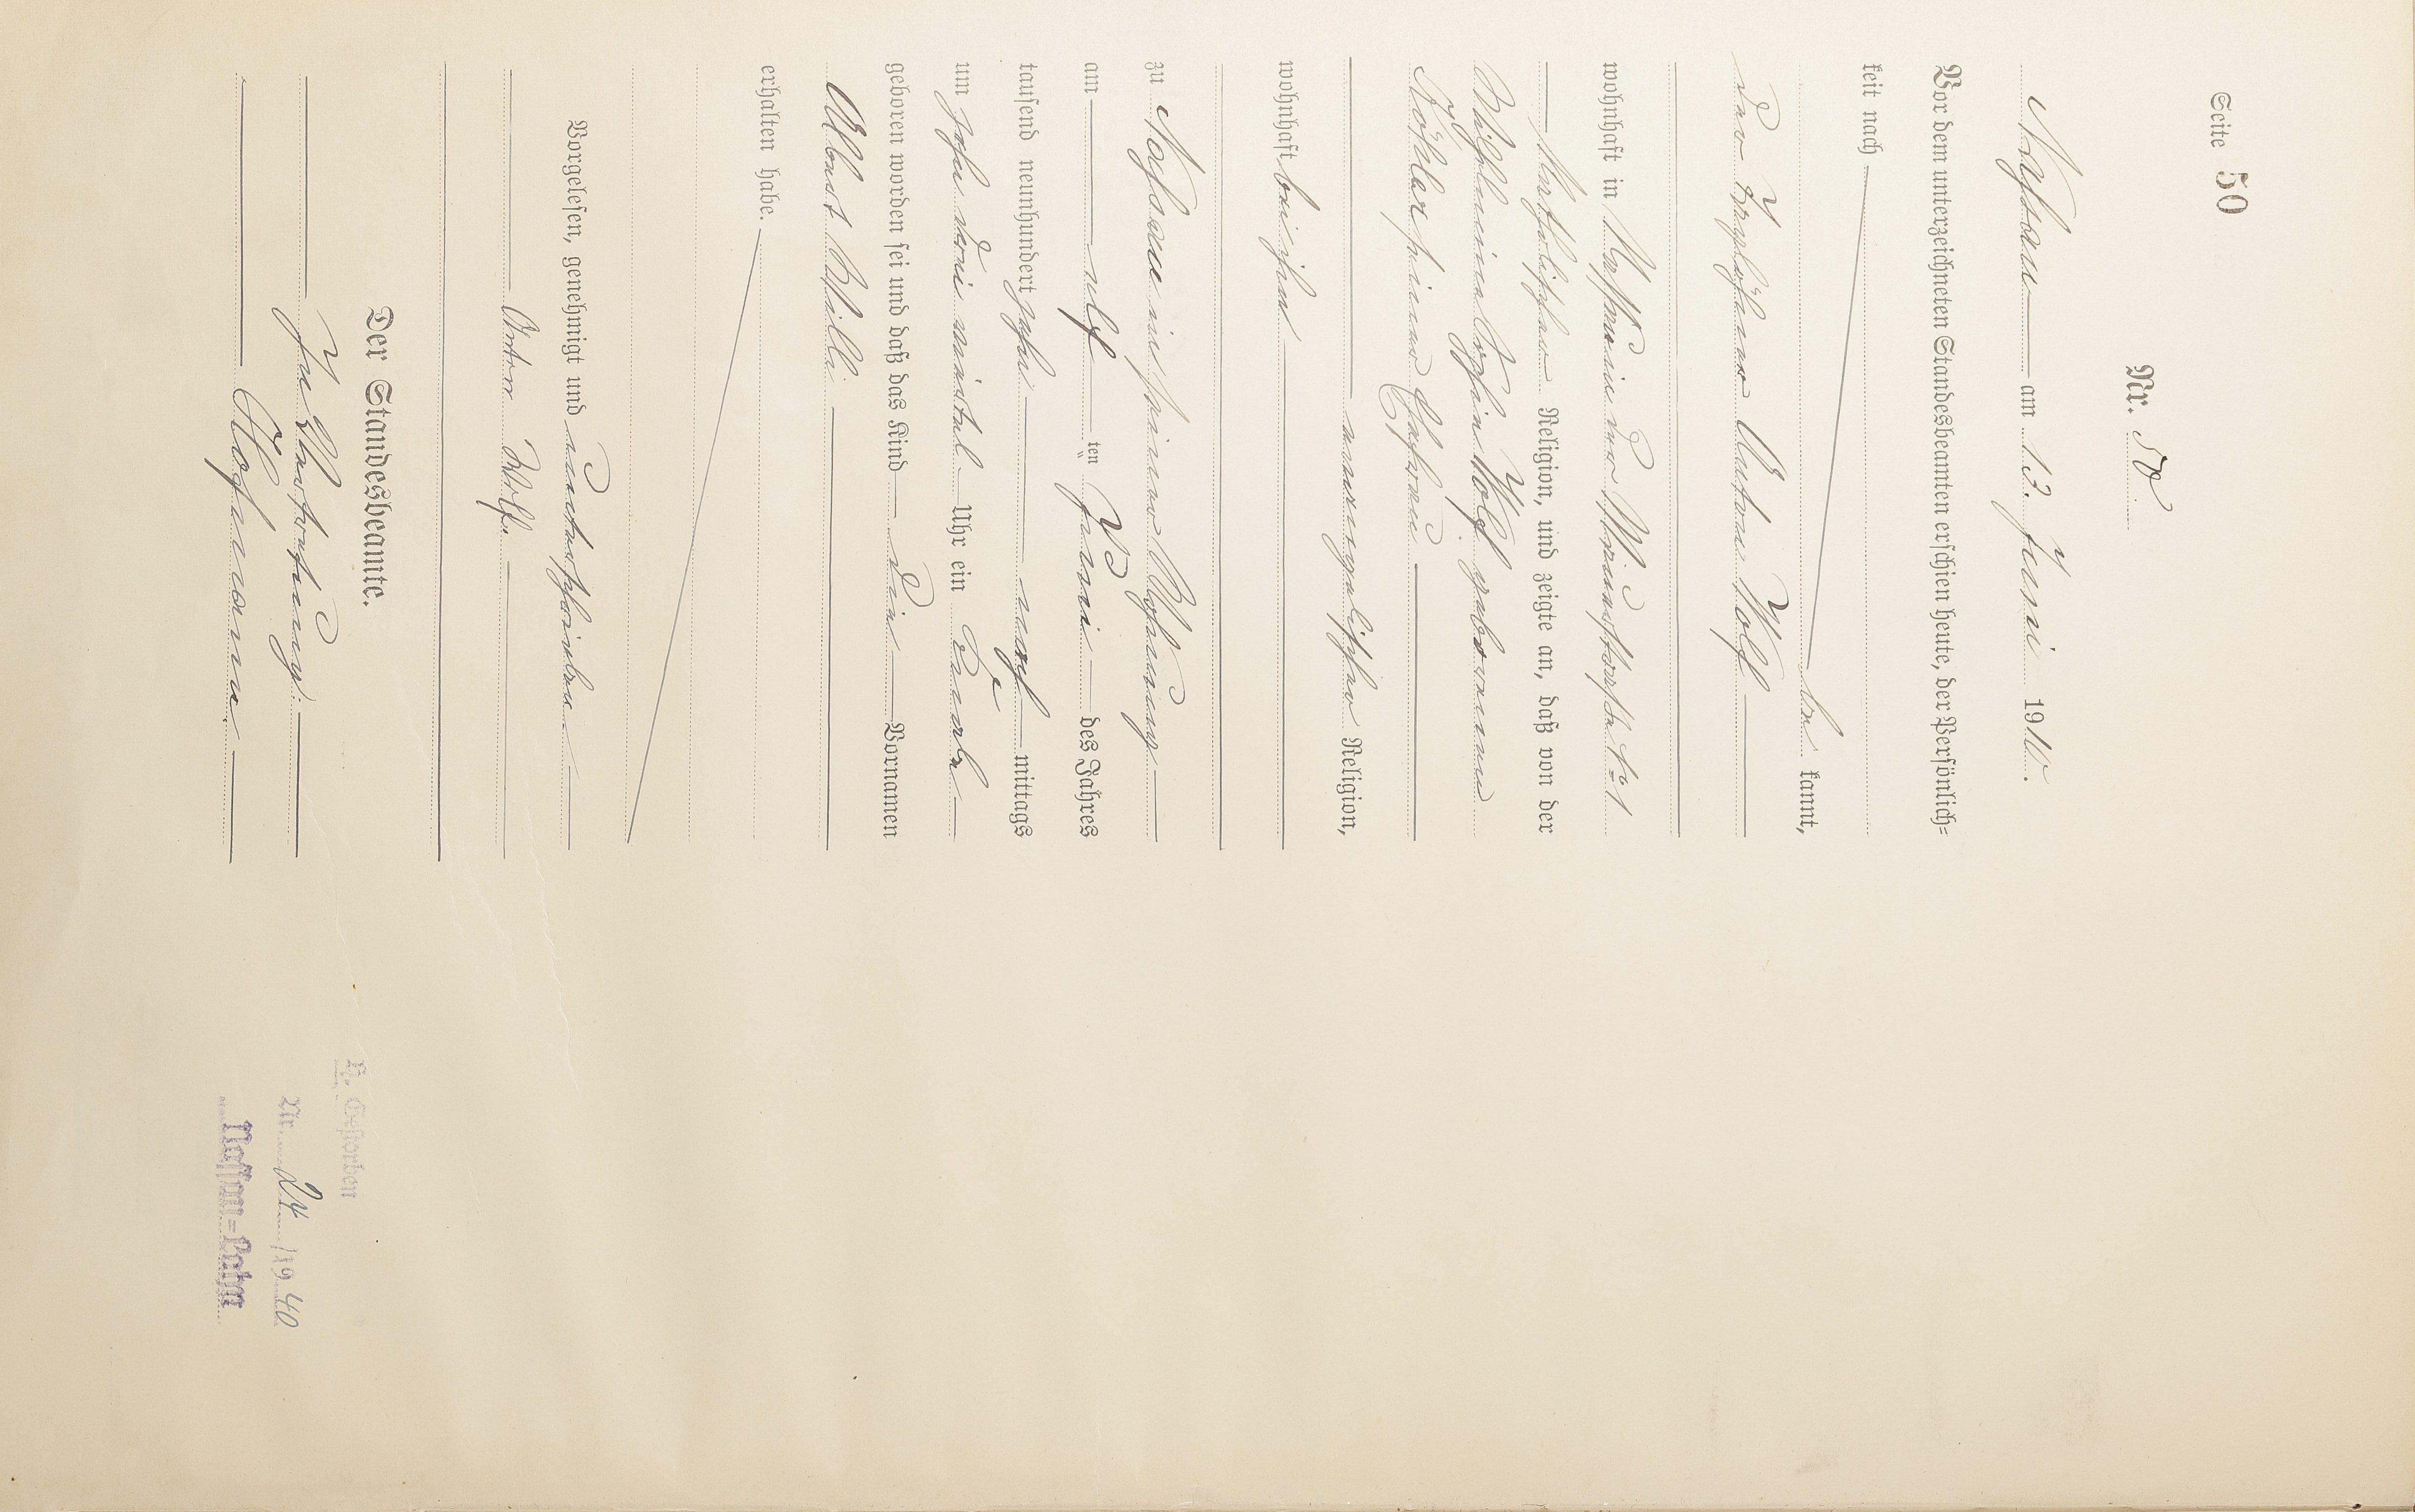 Seite 50
Nr. 50
Nassau am 13. Juni 1910.
Vor dem unterzeichneten Standesbeamten erschien heute, der Persönlich-
keit nach
be kannt,
der Taglöhner Anton Wolf
wohnhaft in Nassau in der
katholischer Religion, und zeigte an, daß von der
Wilhelmine Wolf geborenen
Köhler seiner Ehefrau
evangelischer Religion,
wohnhaft bei ihm
zu Nassau in seiner Wohnung
am elf ten Juni des Jahres
tausend neunhundert zehn nach mittags
um zehn drei viertel Uhr ein Knabe
geboren worden sei und daß das Kind die Vornamen
Albert Willi
erhalten habe.
Vorgelesen, genehmigt und unterschrieben
Anton Wolf.
Der Standesbeamte.
In Vertretung:
Hofmann
H. Gestorben
Nr. 24 /1940
Nassau-Lahn